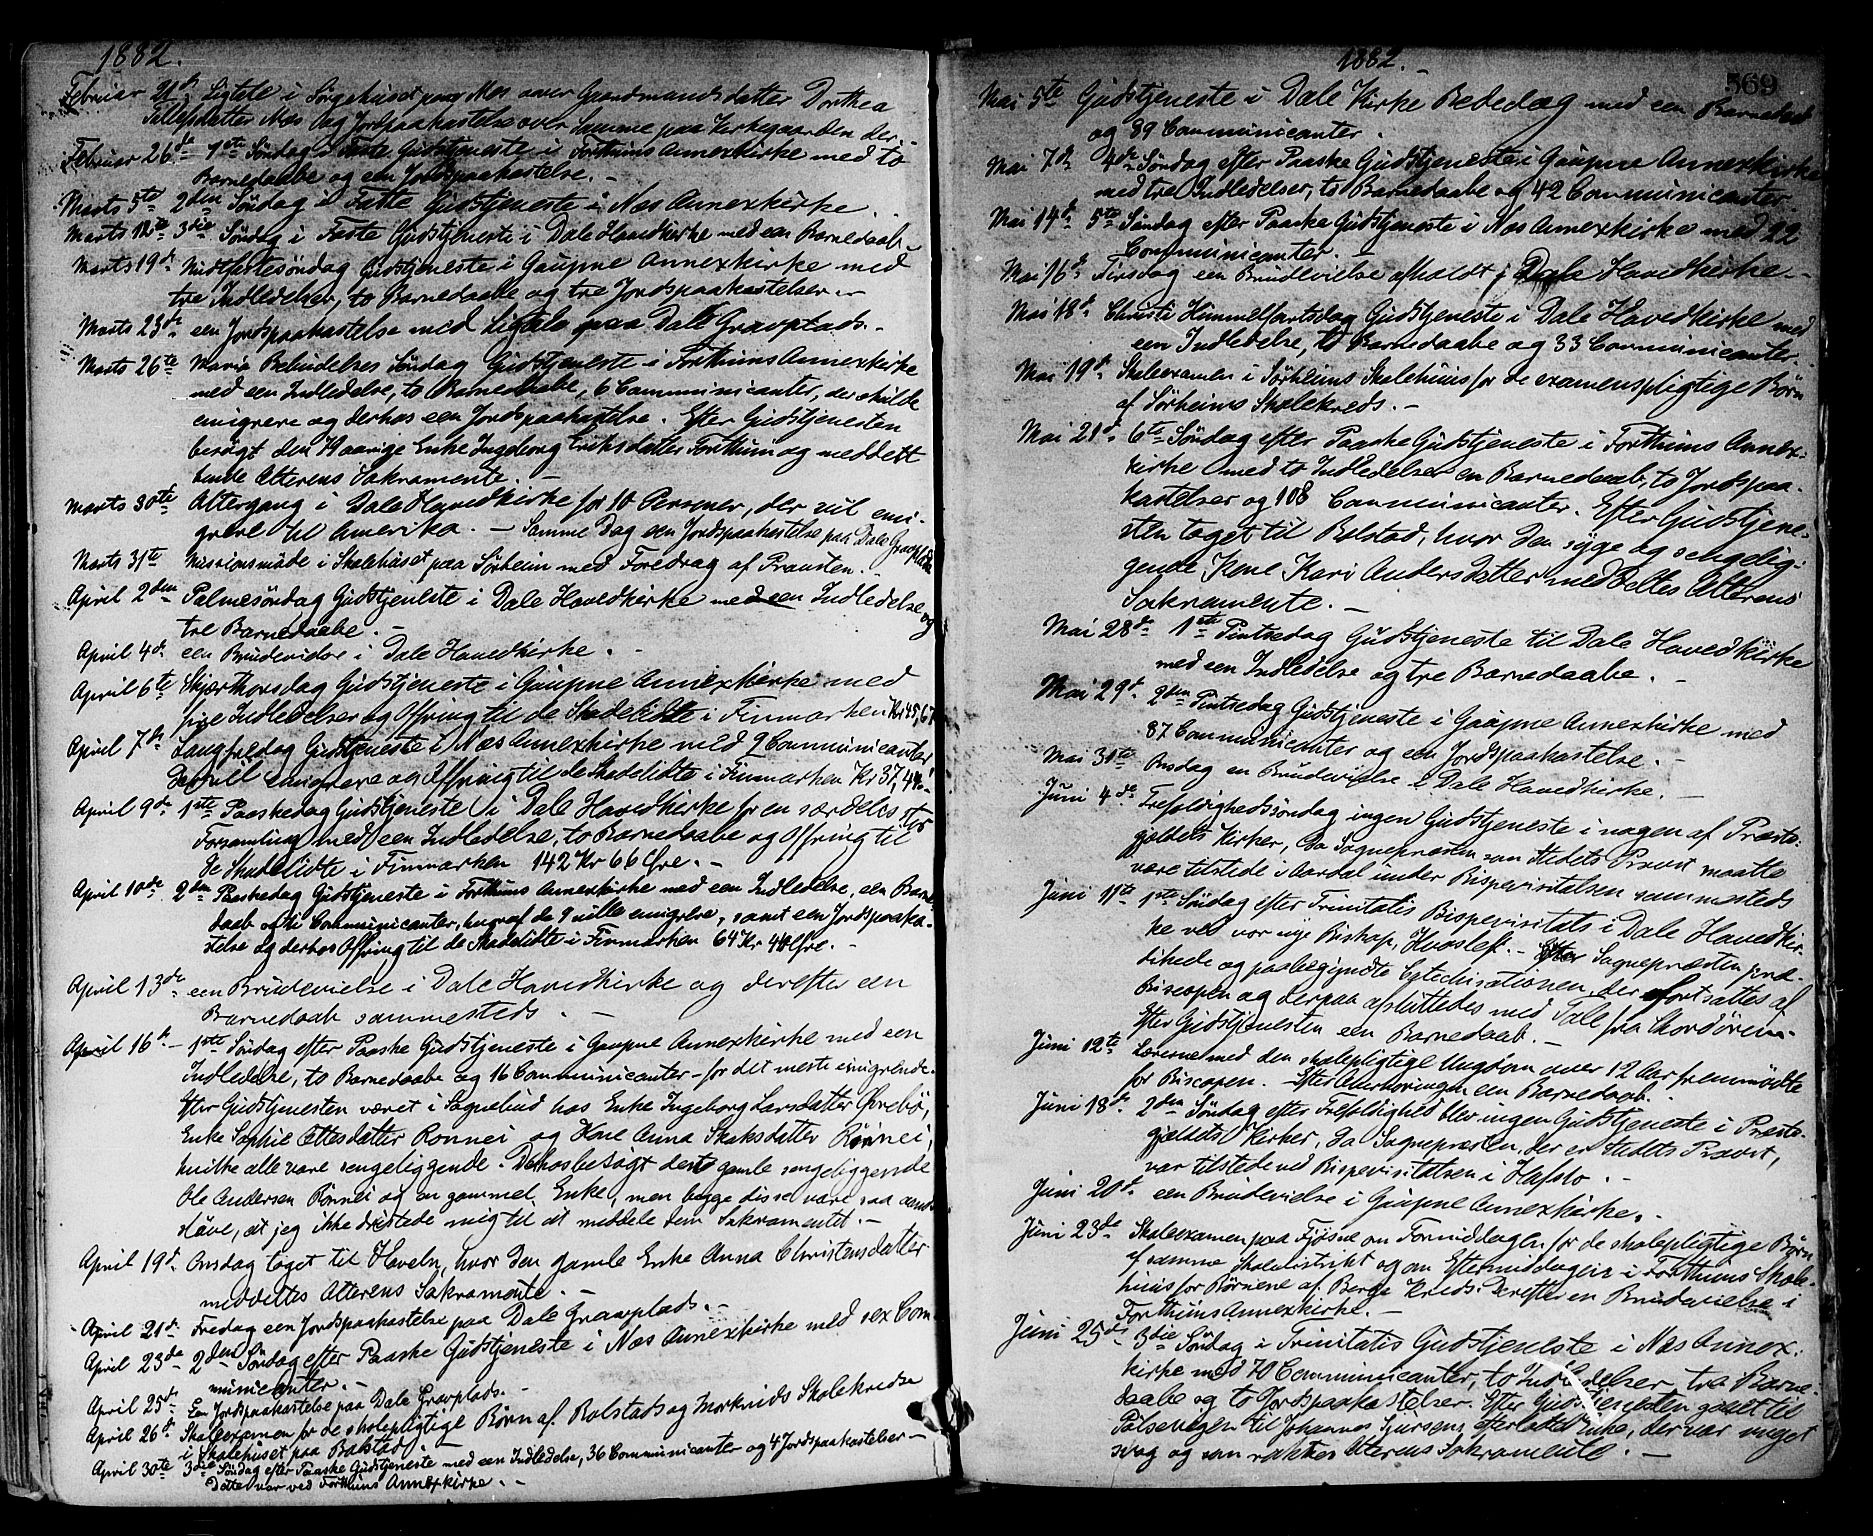 1882.
Februar 21de Ligtale i Sørgehuset paa Næs over Gaardmandsdatter Dorthea
Næs og Jordpaakastelse over Samme paa Kirkegaarden der.
Februar 26de 1ste Søndag i Faste Gudstjeneste i Forthuns Annexkirke med to
Barnedaabe og een Jordpaakastelse. –
Marts 5te 2den Søndag i Faste Gudstjeneste i Næs Annexkirke.
Marts 12te 3die Søndag i Faste Gudstjeneste i Dale Hovedkirke med een Barnedaab –
Marts 19de Midfastesøndag Gudstjeneste i Gaupne Annexkirke med
tre Indledelser, to Barnedaabe og tre Jordspaakastelser –
Marts 23de een Jordspaakastelse med Ligtale paa Dale Gravplads. –
Marts 26te Mariæ Bebudelses Søndag Gudstjeneste i Forthuns Annexkirke
med een Indledelse, to Barnedaabe, 6 Communicanter, der skulde
emigrere og derhos een Jordspaakastelse. Efter Gudstjenesten
besøgt den 79 aarige Enke Ingeborg Eriksdatter Forthun og meddelt
hende Alterens Sakramente. –
Marts 30te Altergang i Dale Hovedkirke for 10 Personer, der vil emi-
grere til Amerika. – Samme Dag een Jordspaakastelse paa Dale Gravplads
Marts 31te Missionsmøde i Skolehuset paa Sørheim med Foredrag af Provsten. –
April 2den Palmesøndag Gudstjeneste i Dale Hovedkirke med een Indledelse og
tre Barnedaabe. –
April 4de een Brudevielse i Dale Hovedkirke. –
April 6te Skjærthorsdag Gudstjeneste i Gaupne Annexkirke med
fire Indledelser og Offring til de Skadelidte i Finmarken Kr 45,67
April 7de Langfredag Gudstjeneste i Næs Annexkirke med 9 Communicanter
emigrere og Offring til de Skadelidte i Finmarken Kr 37,44. –
April 9de 1ste Paaskedag Gudstjeneste i Dale Hovedkirke for en særdeles stor
Forsamling med een Indledelse, to Barnedaabe og Offring til
de Skadelidte i Finmarken 142 Kr 66 Øre. –
April 10de 2den Paaskedag Gudstjeneste i Forthuns Annexkirke med een Indledelse, een Barne-
daab, ti Communicanter, hvoraf de 9 ville emigrere, samt een Jordspaaka-
stelse og derhos Offring til de Skadelidte i Finmarken 64 Kr 40 Øre. –
April 13de een Brudevielse i Dale Hovedkirke og derefter een
Barnedaab sammesteds. –
April 16de – 1ste Søndag efter Paaske Gudstjeneste i Gaupne Annexkirke med een
Indledelse, to Barnedaabe og 16 Communicanter – for det meste emigrende.
Efter Gudstjenesten været i Sognebud hos Enke Ingeborg Larsdatter Øvrebø,
Enke Sophie Ottesdatter Rønnei og Kone Anna Skaksdatter Rønnei,
hvilke alle vare sengeliggende. Derhos besøgt dest gamle sengeliggende
Ole Andersen Rønnei og en gammel Enke, men begge disse vare saa aands-
sløve, at jeg ikke dristede mig til at meddele dem Sakramentet. –
April 19de Onsdag taget til Haveln, hvor den gamle Enke Anna Christensdatter
meddeltes Alterens Sakramente. –
April 21de Fredag een Jordspaakastelse paa Dale Gravplads. –
April 23de 2den Søndag efter Paaske Gudstjeneste i Næs Annexkirke med sex Com
municanter. –
April 25de Een Jordspaakastelse paa Dale Gravplads. –
April 26de Skoleexamen for de skolepligtige Børn af Bolstads og Morkrids Skolekredse
i Skolehuset paa Bolstad –
April 30te 3die Søndag efter Paaske Gudstjeneste med een Indledelse, 36 Communicanter og 4 Jordspaakastelser –
Dette var ved Forthuns Annexkirke. –
1882.
569
Mai 5te Gudstjeneste i Dale Kirke Bededag med een Barnedaab
og 89 Communicanter.
Mai 7de 4de Søndag efter Paaske Gudstjeneste i Gaupne Annexkirke
med tre Indledelser, to Barnedaabe og 42 Communicanter.
Mai 14de 5te Søndag efter Paaske Gudstjeneste i Næs Annexkirke med 22
Communicanter. –
Mai 16de Tirsdag een Brudevielse afholdt i Dale Hovedkirke. –
Mai 18de Christi Himmelfartsdag Gudstjeneste i Dale Hovedkirke med
een Indledelse, to Barnedaabe og 33 Communicanter.
Mai 19de Skoleexamen i Sørheims Skolehuus for de examenspligtige Børn
af Sørheims Skolekreds. –
Mai 21de 6te Søndag efter Paaske Gudstjeneste i Forthuns Annex-
kirke med to Indledelser en Barnedaab, to Jordspaa-
kastelser og 108 Communicanter. Efter Gudstjene-
sten taget til Bolstad, hvor den syge og sengelig-
gende Kone Kari Andersdatter meddeeltes Alterens
Sakramente. –
Mai 28de 1ste Pintsedag Gudstjeneste til Dale Hovedkirke
med een Indledelse og tre Barnedaabe. –
Mai 29de 2den Pintsedag Gudstjeneste i Gaupne Annexkirke med
87 Communicanter og een Jordspaakastelse. –
Mai 31te Onsdag en Brudevielse i Dale Hovedkirke. –
Juni 4de Trefoldighedssøndag ingen Gudstjeneste i nogen af Præste-
gjeldets Kirker, da Sognepræsten som Stedets Provst maatte
være tilstede i Aardal under Bispevisitatsen sammesteds
Juni 11te 1ste Søndag efter Trinitatis Bispevisitats i Dale Hovedkir-
ke ved vor nye Biskop, Hvoslef. – Sognepræsten præ-
dikede og paabegyndte Catechisationen, der fortsattes af
Biscopen og derpaa afsluttedes med Tale fra Chordøren. –
Efter Gudstjenesten een Barnedaab. –
Juni 12te Lærerne med den skolepligtige Ungdom over 12 Aar fremmødte
for Biscopen. Efter Overhøringen een Barnedaab. –
Juni 18de 2den Søndag efter Trefoldighed blev ingen Gudstjeneste i Præste-
gjeldets Kirker, da Sognepræsten, der er Stedets Provst,
var tilstede ved Bispevisitatsen i Hafslo. –
Juni 20de een Brudevielse i Gaupne Annexkirke. –
Juni 23de Skoleexamen paa Fjøsne om Formiddagen for de skolepligtige Børn
af samme Skoledistrikt og om Eftermiddagen i Forthuns Skole-
huus for Børnene af Bergs Kreds. Derefter en Brudevielse i
Forthuns Annexkirke. –
Juni 25de 3die Søndag i Trinitatis Gudstjeneste i Næs Annex-
kirke med 70 Communicanter, to Indledelser, tre Barne-
daabe og to Jordspaakastelser. Efter Gudstjenesten gaaet til
til Johannes Sjursens efterladte Enke, der var meget
svag og som raktes Alterens Sakramente. –